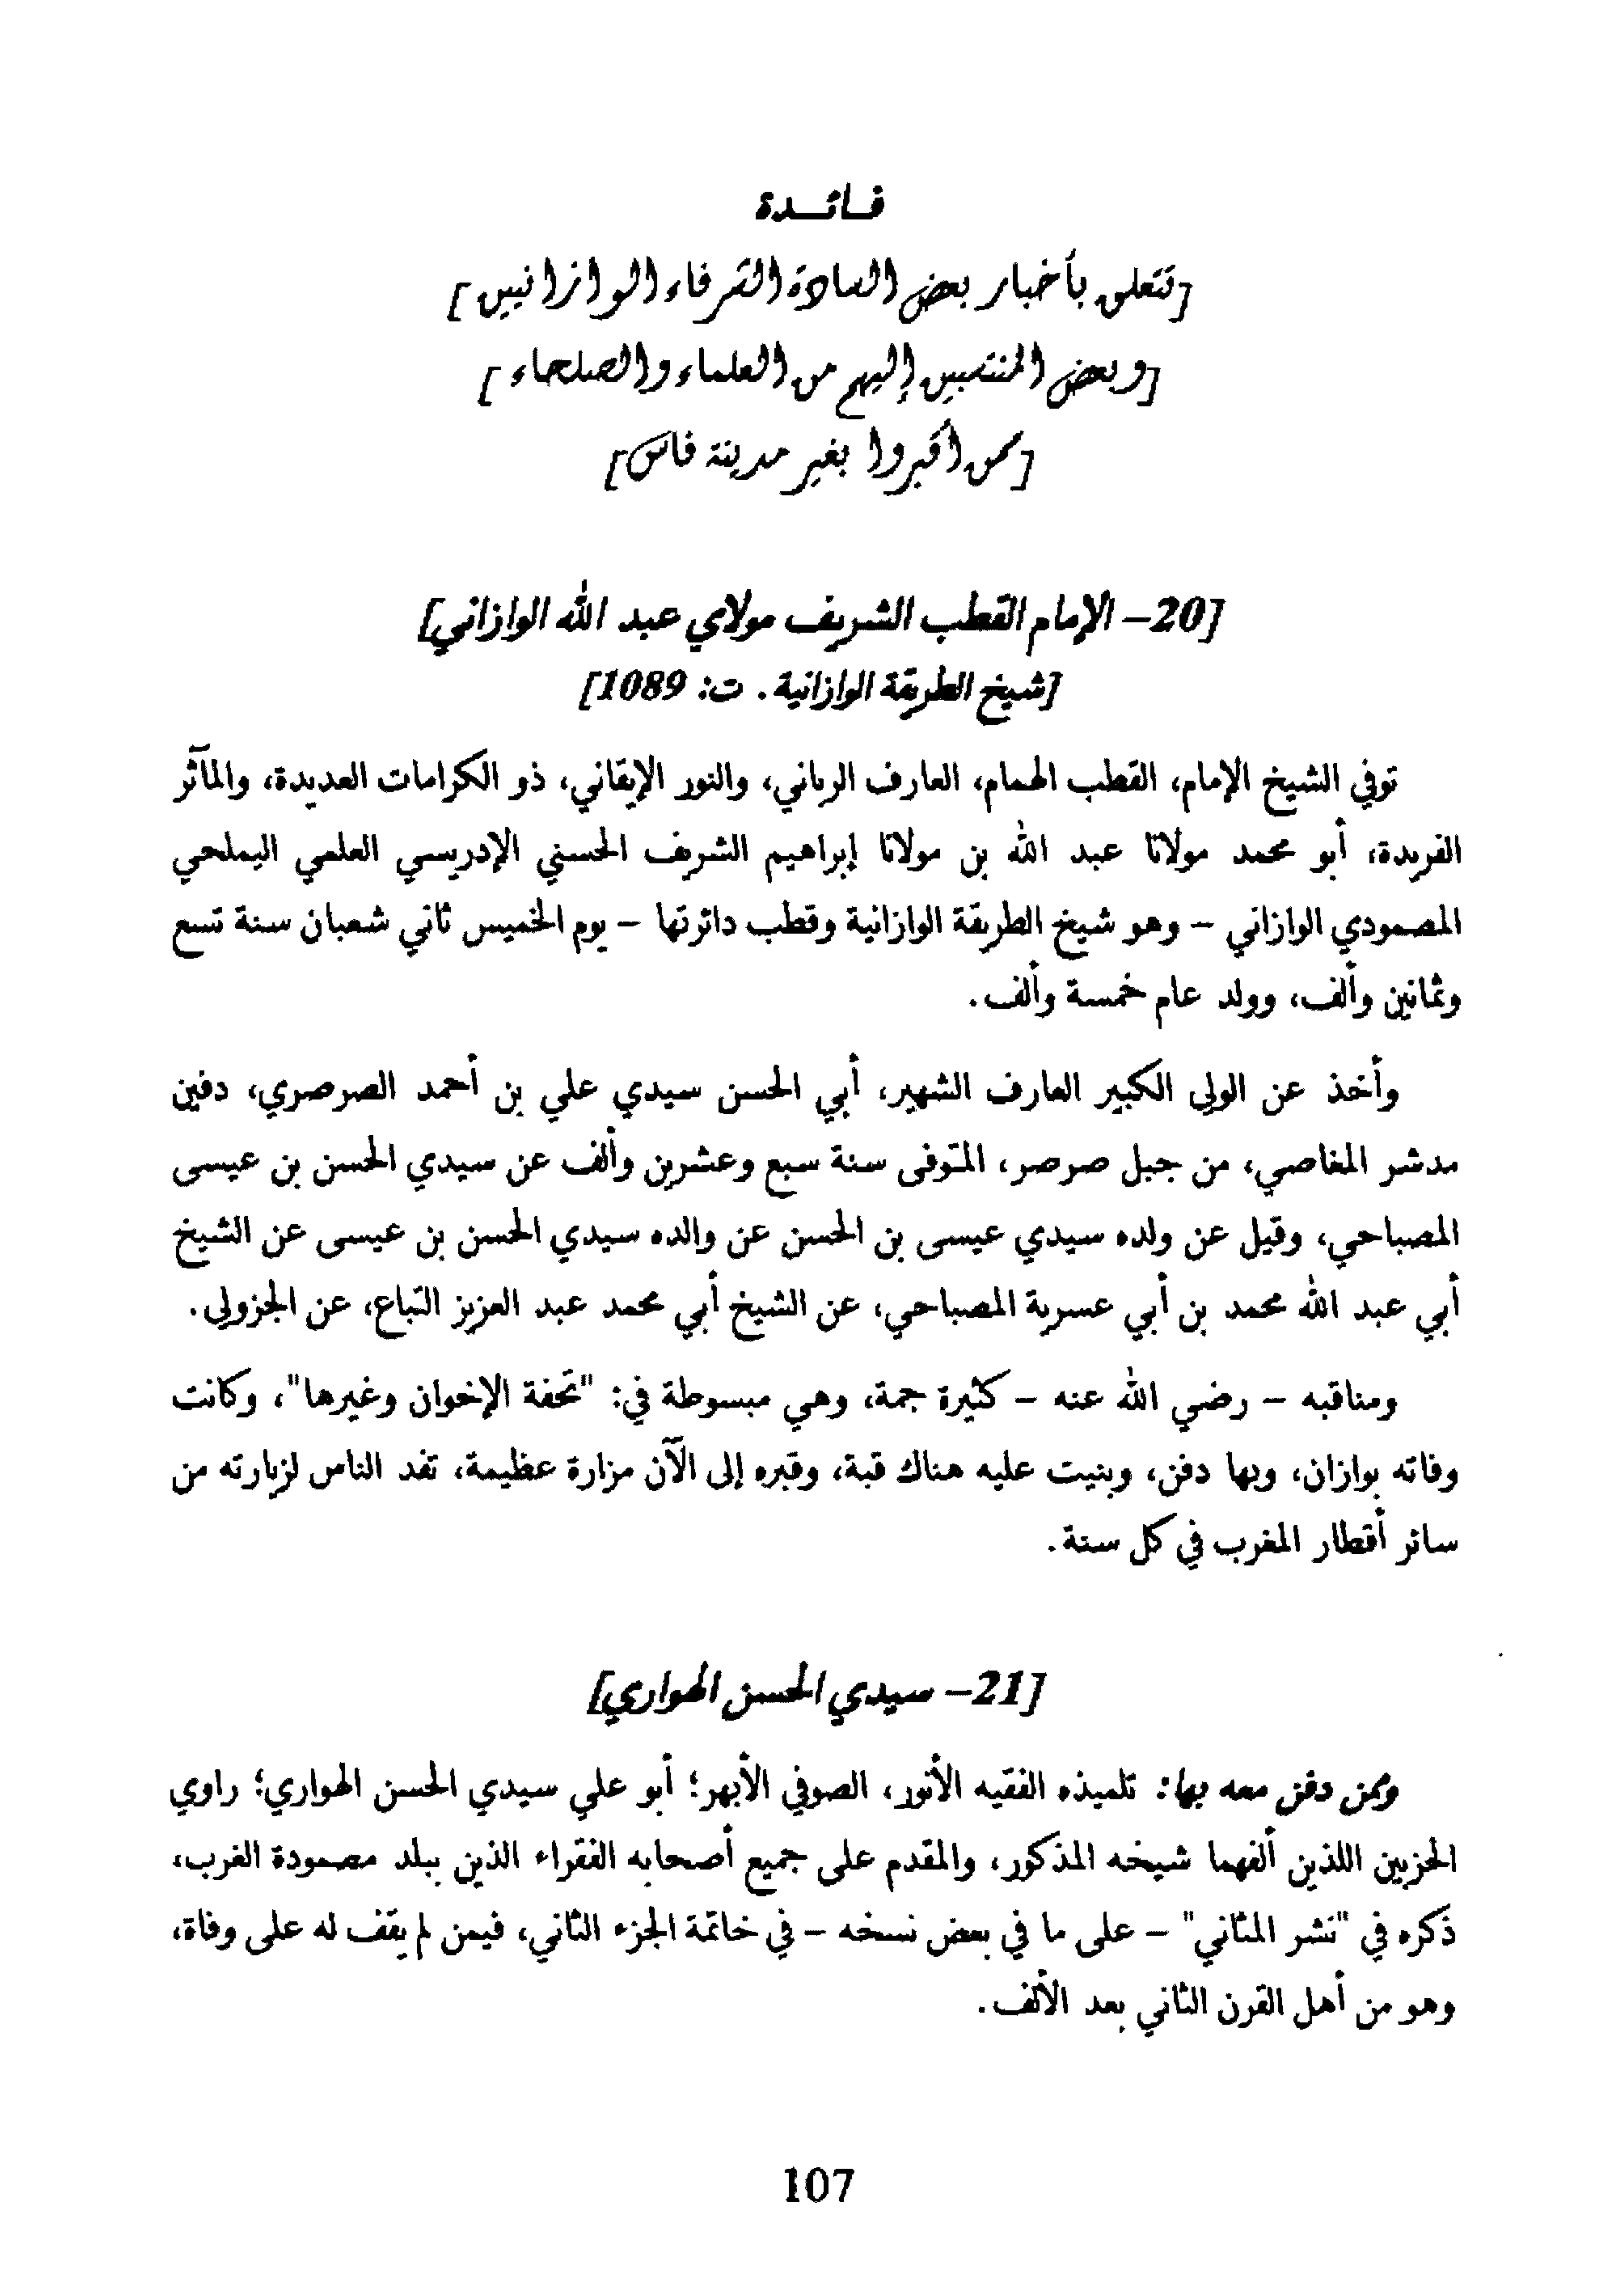 فـائـدة
[تتعلق بأخبار بعض السادة الشرفاء الوازانيين]
[وبعض المنتسبين إليهم من العلماء والصلحاء]
[ممن أقبروا بغير مدينة فاس]
[20– الإمام القطب الشريف مولاي عبد الله الوازاني]
[شيخ الطريقة الوازانية. ت: 1089]
توفي الشيخ الإمام، القطب الهمام، العارف الرباني، والنور الإيقاني، ذو الكرامات العديدة، والمآثر
الفريدة، أبو محمد مولانا عبد الله بن مولانا إبراهيم الشريف الحسني الإدريسي العلمي اليملحي
المصمودي الوازاني – وهو شيخ الطريقة الوازانية وقطب دائرتها – يوم الخميس ثاني شعبان سنة تسع
وثمانين وألف، وولد عام خمسة وألف.
وأخذ عن الولي الكبير العارف الشهير، أبي الحسن سيدي علي بن أحمد الصرصري، دفين
مدشر المغاصي، من جبل صرصر، المتوفى سنة سبع وعشرين وألف عن سيدي الحسن بن عيسى
المصباحي، وقيل عن ولده سيدي عيسى بن الحسن عن والده سيدي الحسن بن عيسى عن الشيخ
أبي عبد الله محمد بن أبي عسرية المصباحي، عن الشيخ أبي محمد عبد العزيز التباع، عن الجزولي.
ومناقبه – رضي الله عنه – كثيرة جمة، وهي مبسوطة في: "تحفة الإخوان وغيرها"، وكانت
وفاته بوازان، وبها دفن، وبنيت عليه هناك قبة، وقبره إلى الآن مزارة عظيمة، تفد الناس لزيارته من
سائر أقطار المغرب في كل سنة.
[21– سيدي الحسن الهواري]
وممن دفن معه بها: تلميذه الفقيه الأنور، الصوفي الأبهر؛ أبو علي سيدي الحسن الهواري؛ راوي
الحزبين اللذين ألفهما شيخه المذكور، والمقدم على جميع أصحابه الفقراء الذين ببلد مصمودة الغرب،
ذكره في "نشر المثاني" – على ما في بعض نسخه – في خاتمة الجزء الثاني، فيمن لم يقف له على وفاة،
وهو من أهل القرن الثاني بعد الألف.
107